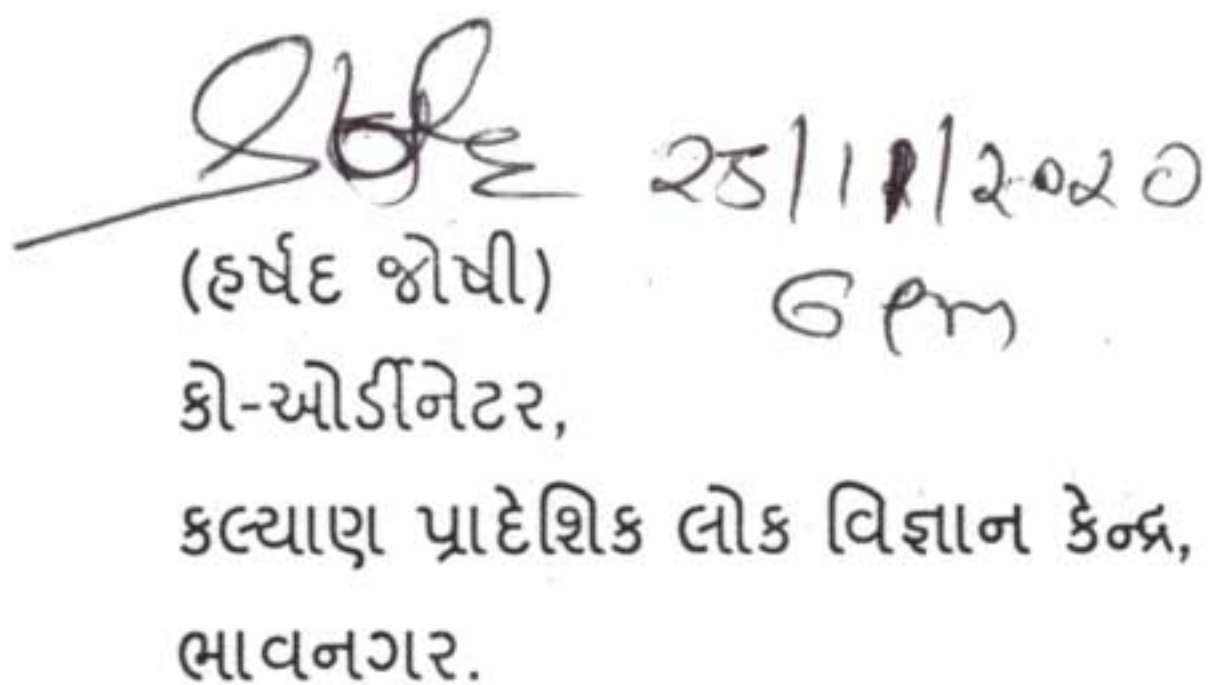 25/11/2020
(હર્ષદ જોષી)
6 pm
કો-ઓર્ડીનેટર,
કલ્યાણ પ્રાદેશિક લોક વિજ્ઞાન કેન્દ્ર,
ભાવનગર.